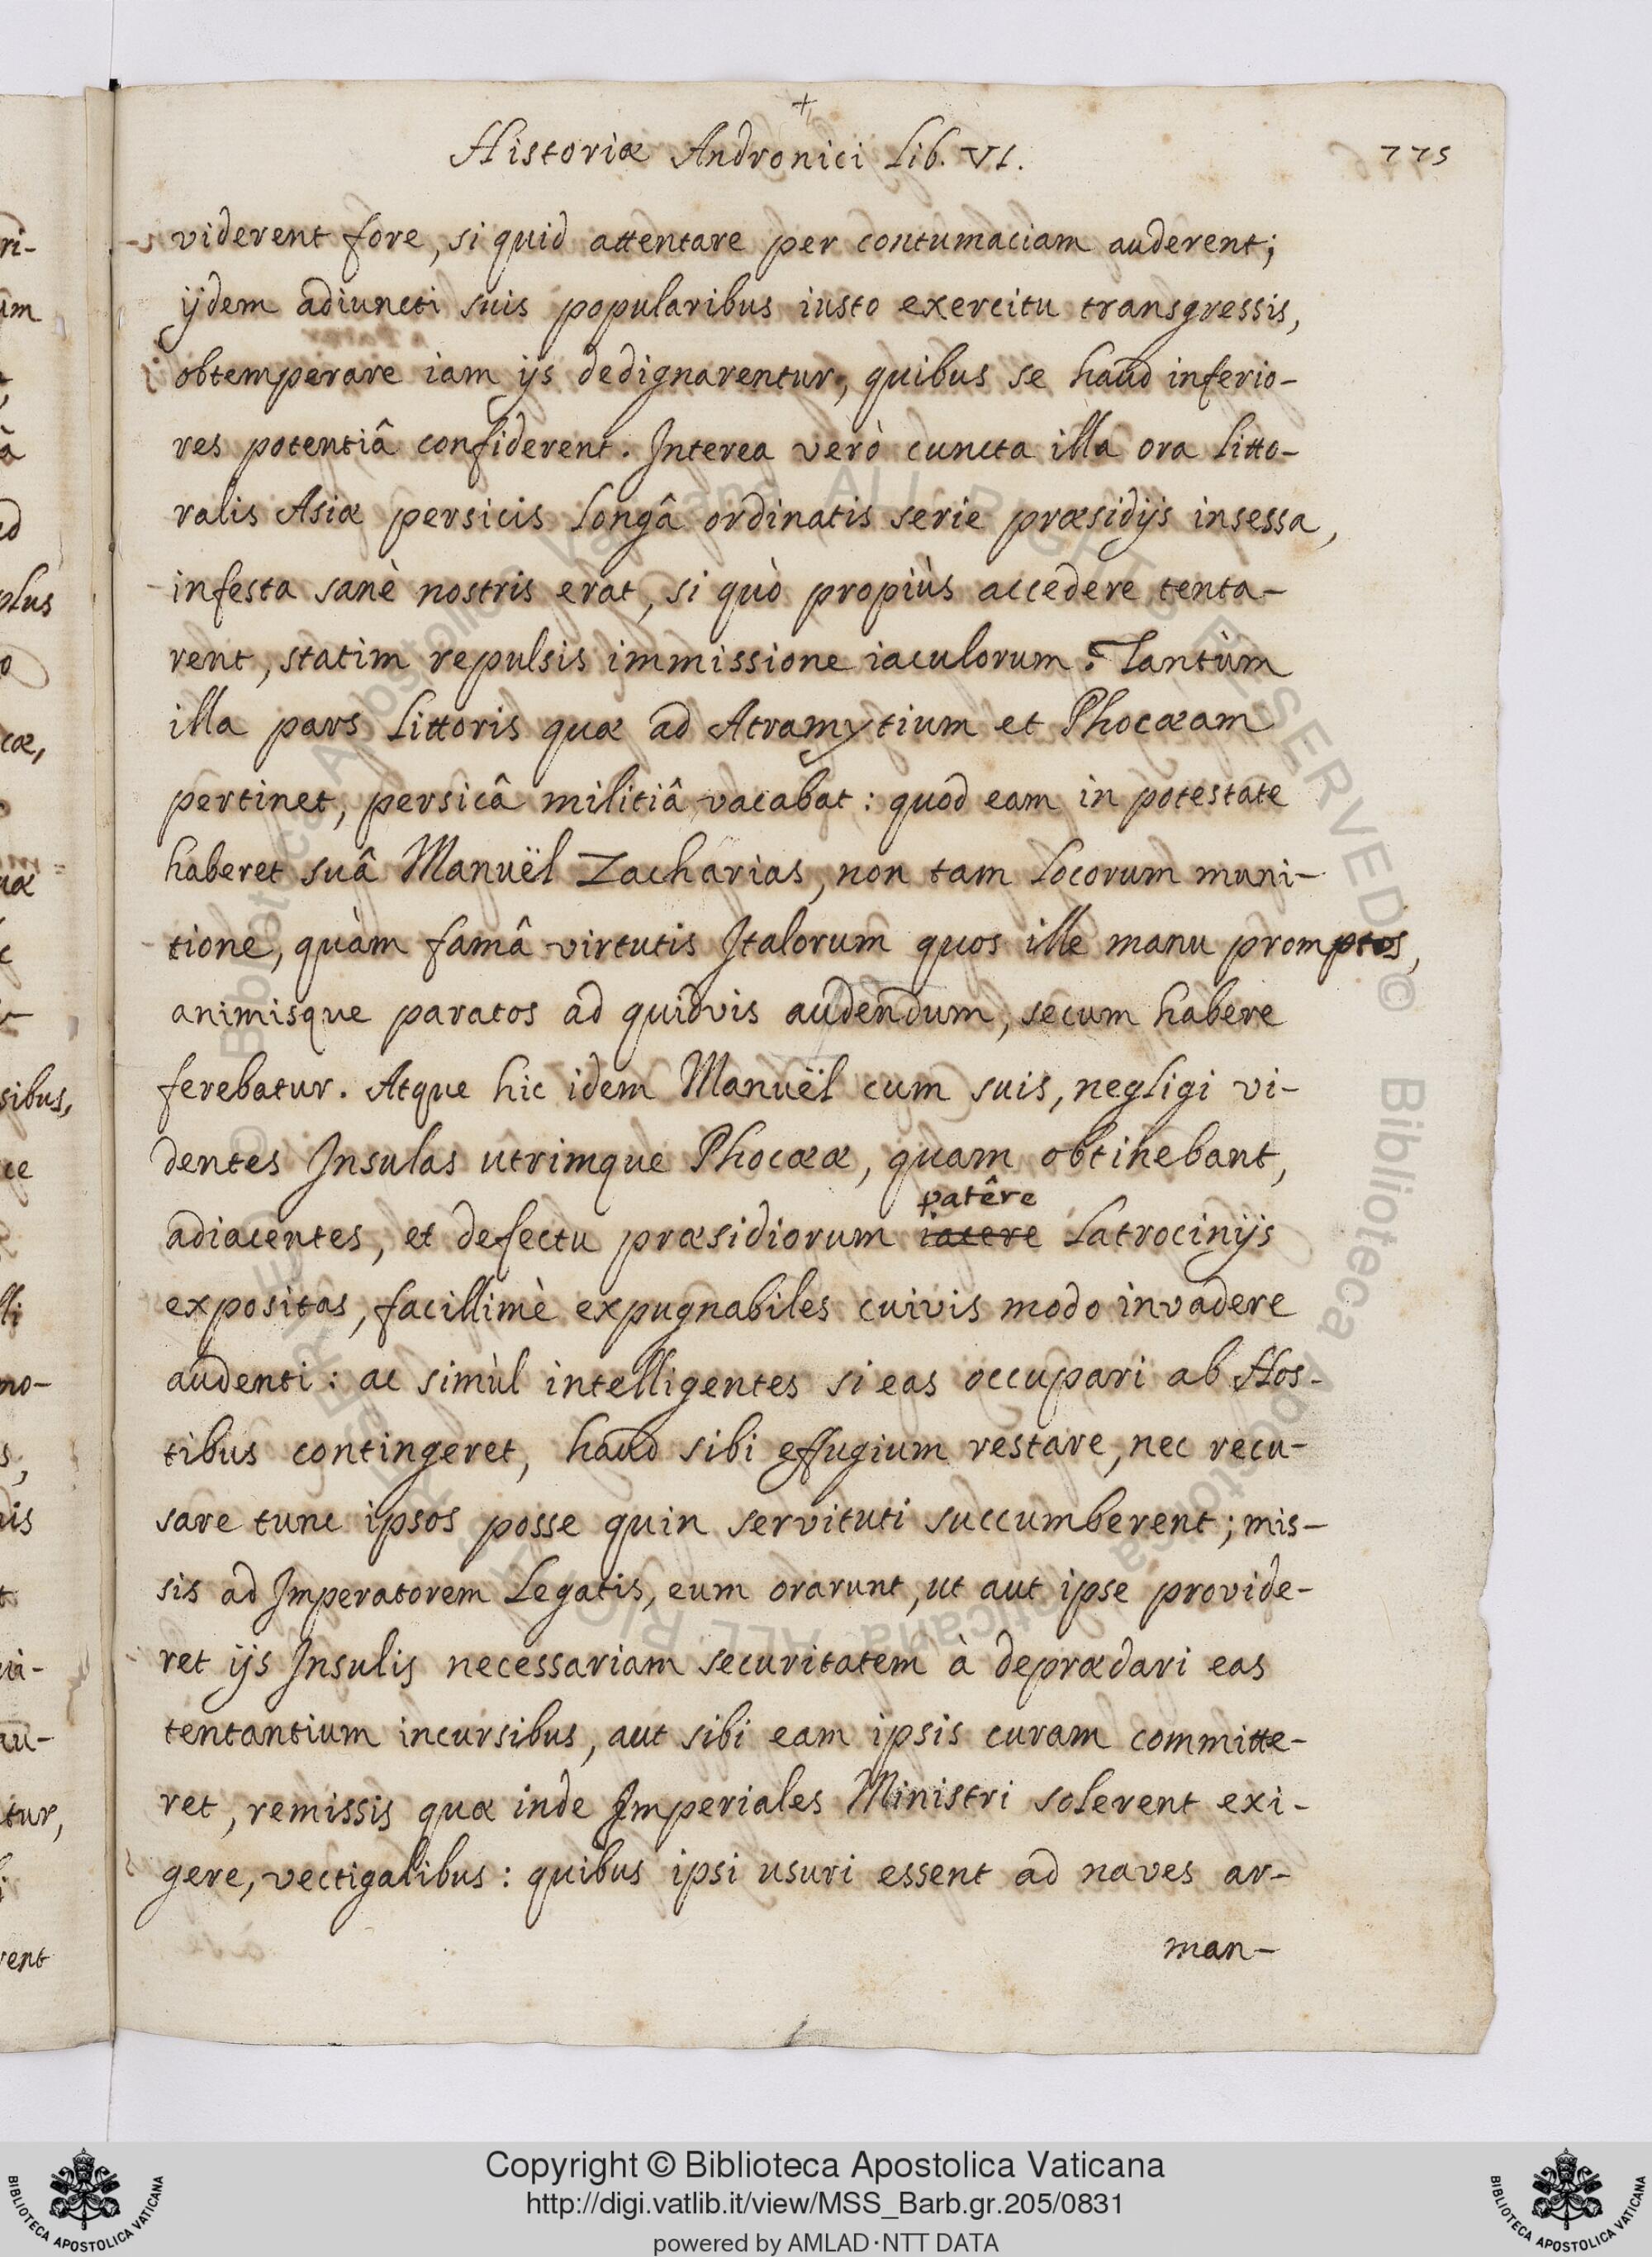 +
Historiæ Andronici Lib. VI.
775
viderent fore, si quid attentare per contumaciam auderent;
ijdem adiuncti suis popularibus iusto exercitu transgressis,
obtemperare iam ijs dedignarentur, quibus se haud inferio-
res potentiâ confiderent. Interea verò cuncta illa ora Litto-
ralis Asiæ persicis Longâ ordinatis serie præsidijs insessa,
infesta sanè nostris erat, si quò propiùs accedere tenta-
rent, statim repulsis immissione iaculorum. Tantùm
illa pars Littoris quæ ad Atramytium et Phocæam
pertinet, persicâ militiâ vacabat: quod eam in potestate
haberet suâ Manuël Zacharias, non tam Locorum muni-
tione, quàm famâ virtutis Italorum quos ille manu promptos,
animisque paratos ad quidvis audendum, secum habere
ferebatur. Atque hic idem Manuël cum suis, negligi vi-
dentes Insulas utrimque Phocææ, quam obtinebant,
patêre
adiacentes, et defectu præsidiorum iacere Latrocinijs
expositas, facillimè expugnabiles cuivis modo invadere
audenti: ac simùl intelligentes si eas occupari ab Hos-
tibus contingeret, haud sibi effugium restare, nec recu-
sare tunc ipsos posse quin servituti succumberent; mis-
sis ad Imperatorem Legatis, eum orarunt, ut aut ipse provide-
ret ijs Insulis necessariam securitatem à deprædari eas
tentantium incursibus, aut sibi eam ipsis curam committe-
ret, remissis quæ inde Imperiales Ministri solerent exi-
gere, vectigalibus: quibus ipsi usuri essent ad naves ar-
man-
ri-
um
à
ed
plus
o
cæ,
uæ
sibus,
ce
lli
mo-
s,
nis
t
au-
tur,
rent
© Biblioteca Apostolica Vaticana ALL RIGHTS RESERVED
© Biblioteca Apostolica Vaticana ALL RIGHTS RESERVED
Copyright © Biblioteca Apostolica Vaticana
http://digi.vatlib.it/view/MSS_Barb.gr.205/0831
powered by AMLAD·NTT DATA
BIBLIOTECA APOSTOLICA VATICANA
BIBLIOTECA APOSTOLICA VATICANA